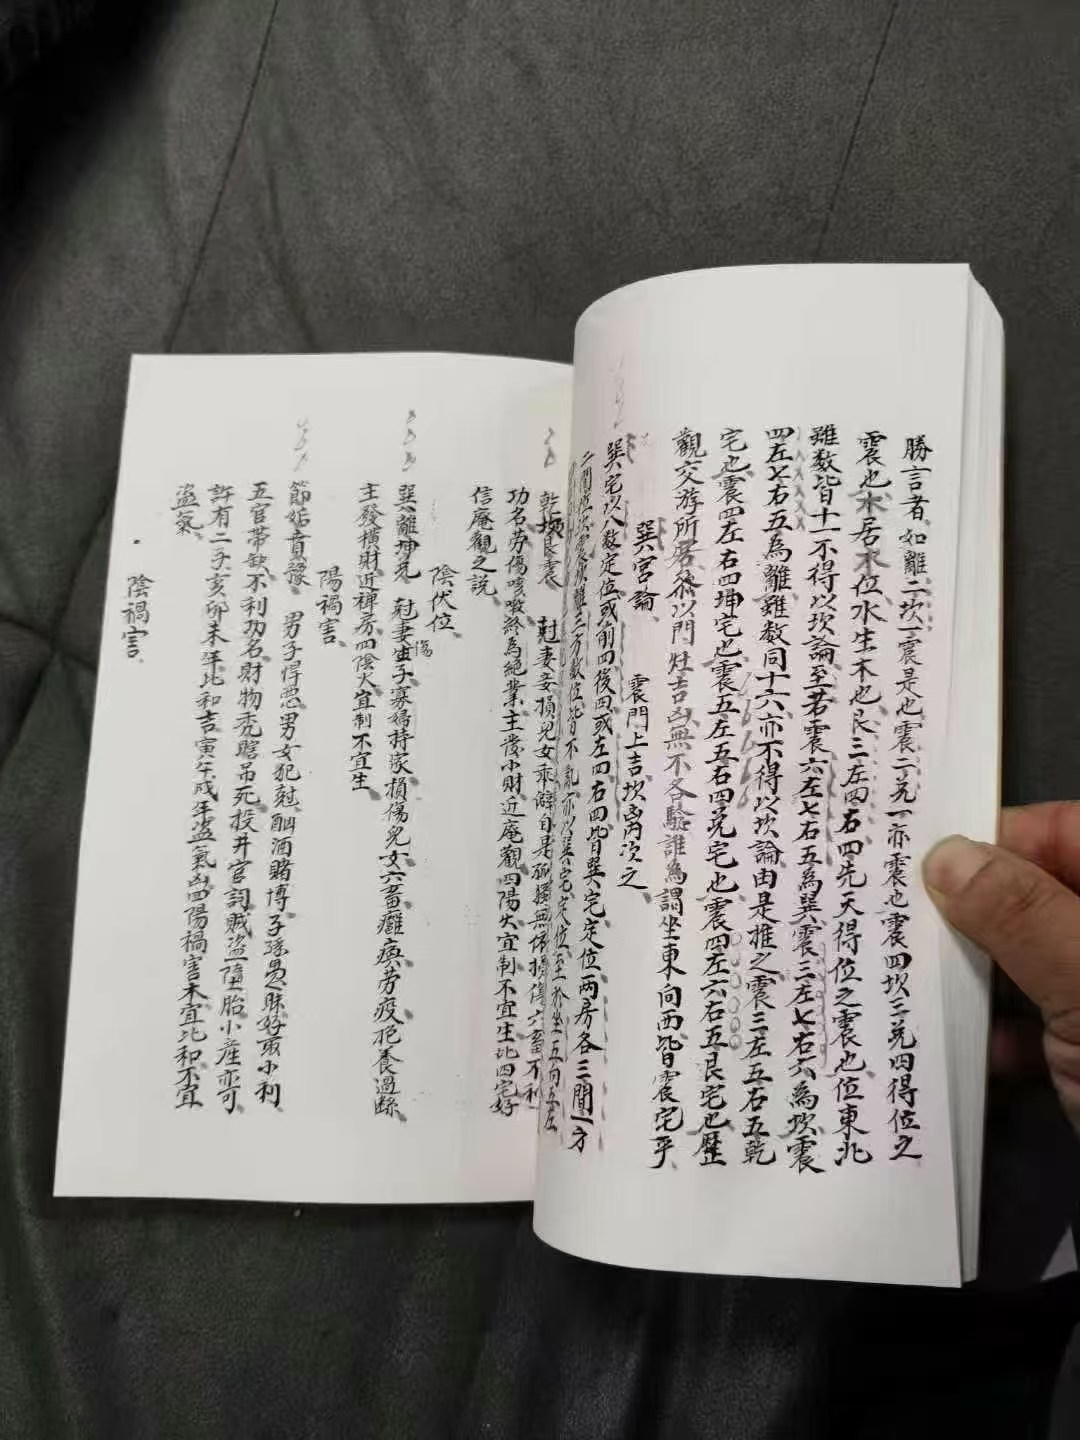 勝言者、如離二坎一震是也震二兑一亦震也震四坎三兑四得位之
震也木居木位水生木也艮三左四右四先天得位之震也位東北
雖数皆十一不得以坎論至若震六左七右五為巽震三左七右六為坎震
四左七右五為離雖数同十六亦不得以坎論由是推之震三左五右五乾
宅也震四左右四坤宅也震五左五右四兑宅也震四左六右五艮宅也歷
觀交游所居分以門灶吉凶無不各驗誰為謂坐東向西皆震宅乎
震門上吉坎离次之
巽宫論
巽宅以八数定位或前四後四或左四右四皆巽宅定位两房各三間一方
乾坎艮震 尅妻妾損兒女乖僻自是
功名劳傷咳嗽終為絶業主發小財近庵觀四陽火宜制不宜生此四宅好
信庵觀之説
陰伏位
巽離坤兑 尅妻害子寡婦持家損傷兒女六畜癱瘓劳疫犯養過縣
傷
主發横財近禅房四陰火宜制不宜生
陽禍害
節姤賁豫 男子悍恶男女犯尅酗酒賭博子孫愚昧好取小利
五官帯缺不利功名財物秃瞎吊死投井官詞賊盗堕胎小産亦可
許有二子亥卯未年比和吉寅午戌年盗氣凶四陽禍害木宜比和不宜
盗氣
陰禍害